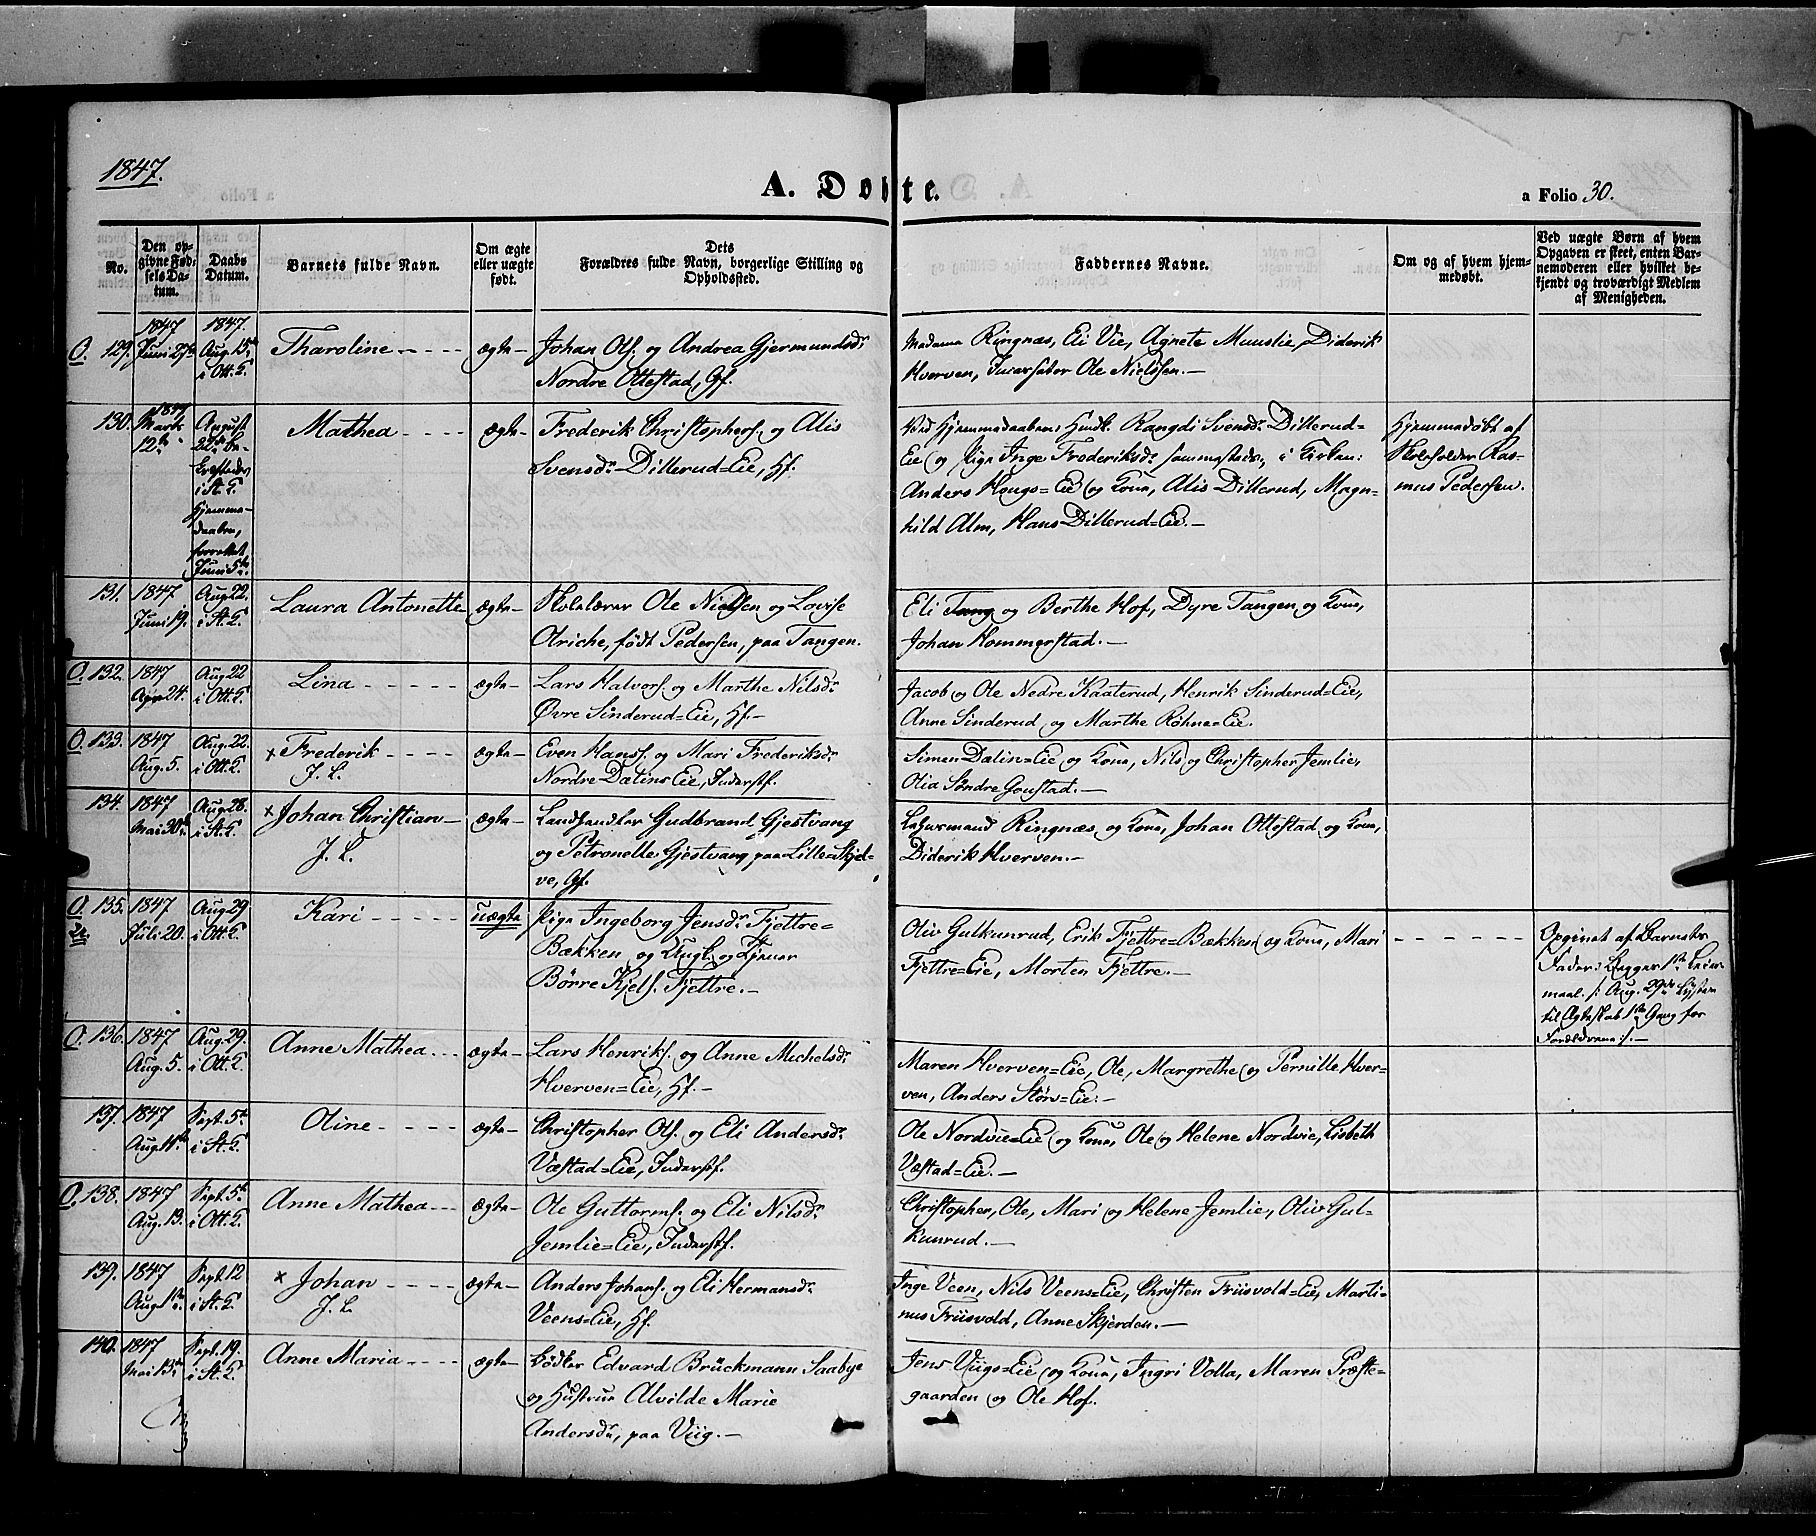 1847.
A. Døbte.
a Folio 30.
No.
Den op-
givne Fød-
sels Da-
tum.
Daabs
Datum.
Barnets fulde Navn.
Om ægte
eller uægte
født.
Dets
Forældres fulde Navn, borgerlige Stilling og
Opholdssted.
Faddernes Navne.
Om og af hvem hjem-
medøbt.
Ved uægte Børn af hvem
Opgaven er skeet, enten Bar-
nemoderen eller hvilket be-
kjendt og troværdigt Medlem
af Menigheden.
O. 129. 1847 Juni 27de
1847. Aug. 15de i Ott. K.
Tharoline
ægte
Johan Ols. og Andrea Gjermundsdr.
Nordre Ottestad, Gf.
Madame Ringnæs, Ei Vie, Agnete Muuslie, Diderik
Hverven, Ole Nielssen.
130. 1847 Marts 12te
August
22de be-
kræftedes
i St. K.
Hjemme-
daaben,
forrettet
Juni 5te
Mathea
ægte
Frederik Christophers. og Alis
Svensdr. Dillerud=Eie, Hf.
Ved Hjemmedaaben: Rangdi Svensdr. Dillerud-
Eie og Pige Inge Frederiksdr. sammesteds, i Kirken:
Anders Hougs=Eie og Kone, Alis Dillerud, Magn-
hild Alm, Hans Dillerud=Eie.
Hjemmedøbt af
Skoleholder Ras-
mus Pedersen.
131. 1847 Juni 19.
Aug. 22. i St. K.
Laura Antonette
ægte
Skolelærer Ole Nielsen og Lovise
Olriche, født Pedersen, paa Tangen.
Eli Tang og Berthe Hof, Dyre Tangen og Kone,
Johan Hommerstad.
O. 132. 1847 Apr. 24.
Aug. 22 i Ott. K.
Lina
ægte
Lars Halvors. og Marthe Nilsdr.
Øvre Sinderud=Eie, Hf.
Jacob og Ole Nedre Kaaterud, Henrik Sinderud=Eie,
Anne Sinderud og Marthe Røhne=Eie.
O. 133. 1847 Aug. 5.
Aug. 22. i Ott. K.
x Frederik
J. L.
ægte
Even Hans. og Mari Frederiksdr.
Nordre Dalins Eie, Inderstf.
Simen Dalin=Eie og Kone, Nils og Christopher Jemlie,
Olia Søndre Goustad.
134. 1847 Mai 30te
Aug. 28. i St. K.
x Johan Christian
J. L.
ægte
Landhandler Gudbrand Gjestvang
og Petronelle Gjestvang paa Lille=Skjel-
ve, Gf.
Lehnsmand Ringnæs og Kone, Johan Ottestad og Kone,
Diderik Hverven.
O. 135. 1847 Juli 20.
Aug. 29 i Ott. K.
Kari
uægte
Pige Ingeborg Jensdr. Fjettre=
Bækken og Ungk. og Tjener
Børre Kjels. Fjettre.
Oliv Gulkunrud, Erik Fjettre=Bækken og Kone, Mari
Fjettre=Eie, Morten Fjettre.
Opgivet af Barnets
Fader: Begges 1ste Leier-
maal. /: Aug. 29de Lysten
til Ægteskab 1ste Gang for
Forældrene:/.
O. 136. 1847 Aug. 5.
Aug. 29. i Ott. K.
Anne Mathea
ægte
Lars Henriks. og Anne Michelsdr.
Hverven=Eie, Hf.
Maren Hverven=Eie, Ole, Margrethe og Pernille Hver-
ven, Anders Størs=Eie.
137. 1847 Aug. 14de
Sept. 5te i St. K.
Oline
ægte
Christopher Ols. og Eli Andersdr.
Væstad=Eie, Inderstf.
Ole Nordvie=Eie og Kone, Ole og Helene Nordvie, Lisbeth
Væstad=Eie.
O. 138. 1847 Aug. 13.
Sept. 5te i Ott. K.
Anne Mathea
ægte
Ole Guttorms. og Eli Nilsdr.
Jemlie=Eie, Inderstf.
Christopher, Ole, Mari og Helene Jemlie, Oliv Gul-
kunrud.
139. 1847 Aug. 1ste
Sept. 12 i St. K.
x Johan
J. L.
ægte
Anders Johans. og Eli Hermansdr.
Veens=Eie, Hf.
Inge Veen, Nils Veens=Eie, Christen Friisvold=Eie, Marti-
nus Friisvold, Anne Skjerden.
140. 1847 Mai 13de
Sept. 19. i St. K.
Anne Maria
ægte
Bødker Edvard Brückmann Saabye
og Hustrue Alvilde Marie
Andersdr., paa Viig.
Jens Viigs=Eie og Kone, Ingri Volla, Maren Præste-
gaarden og Ole Hof.